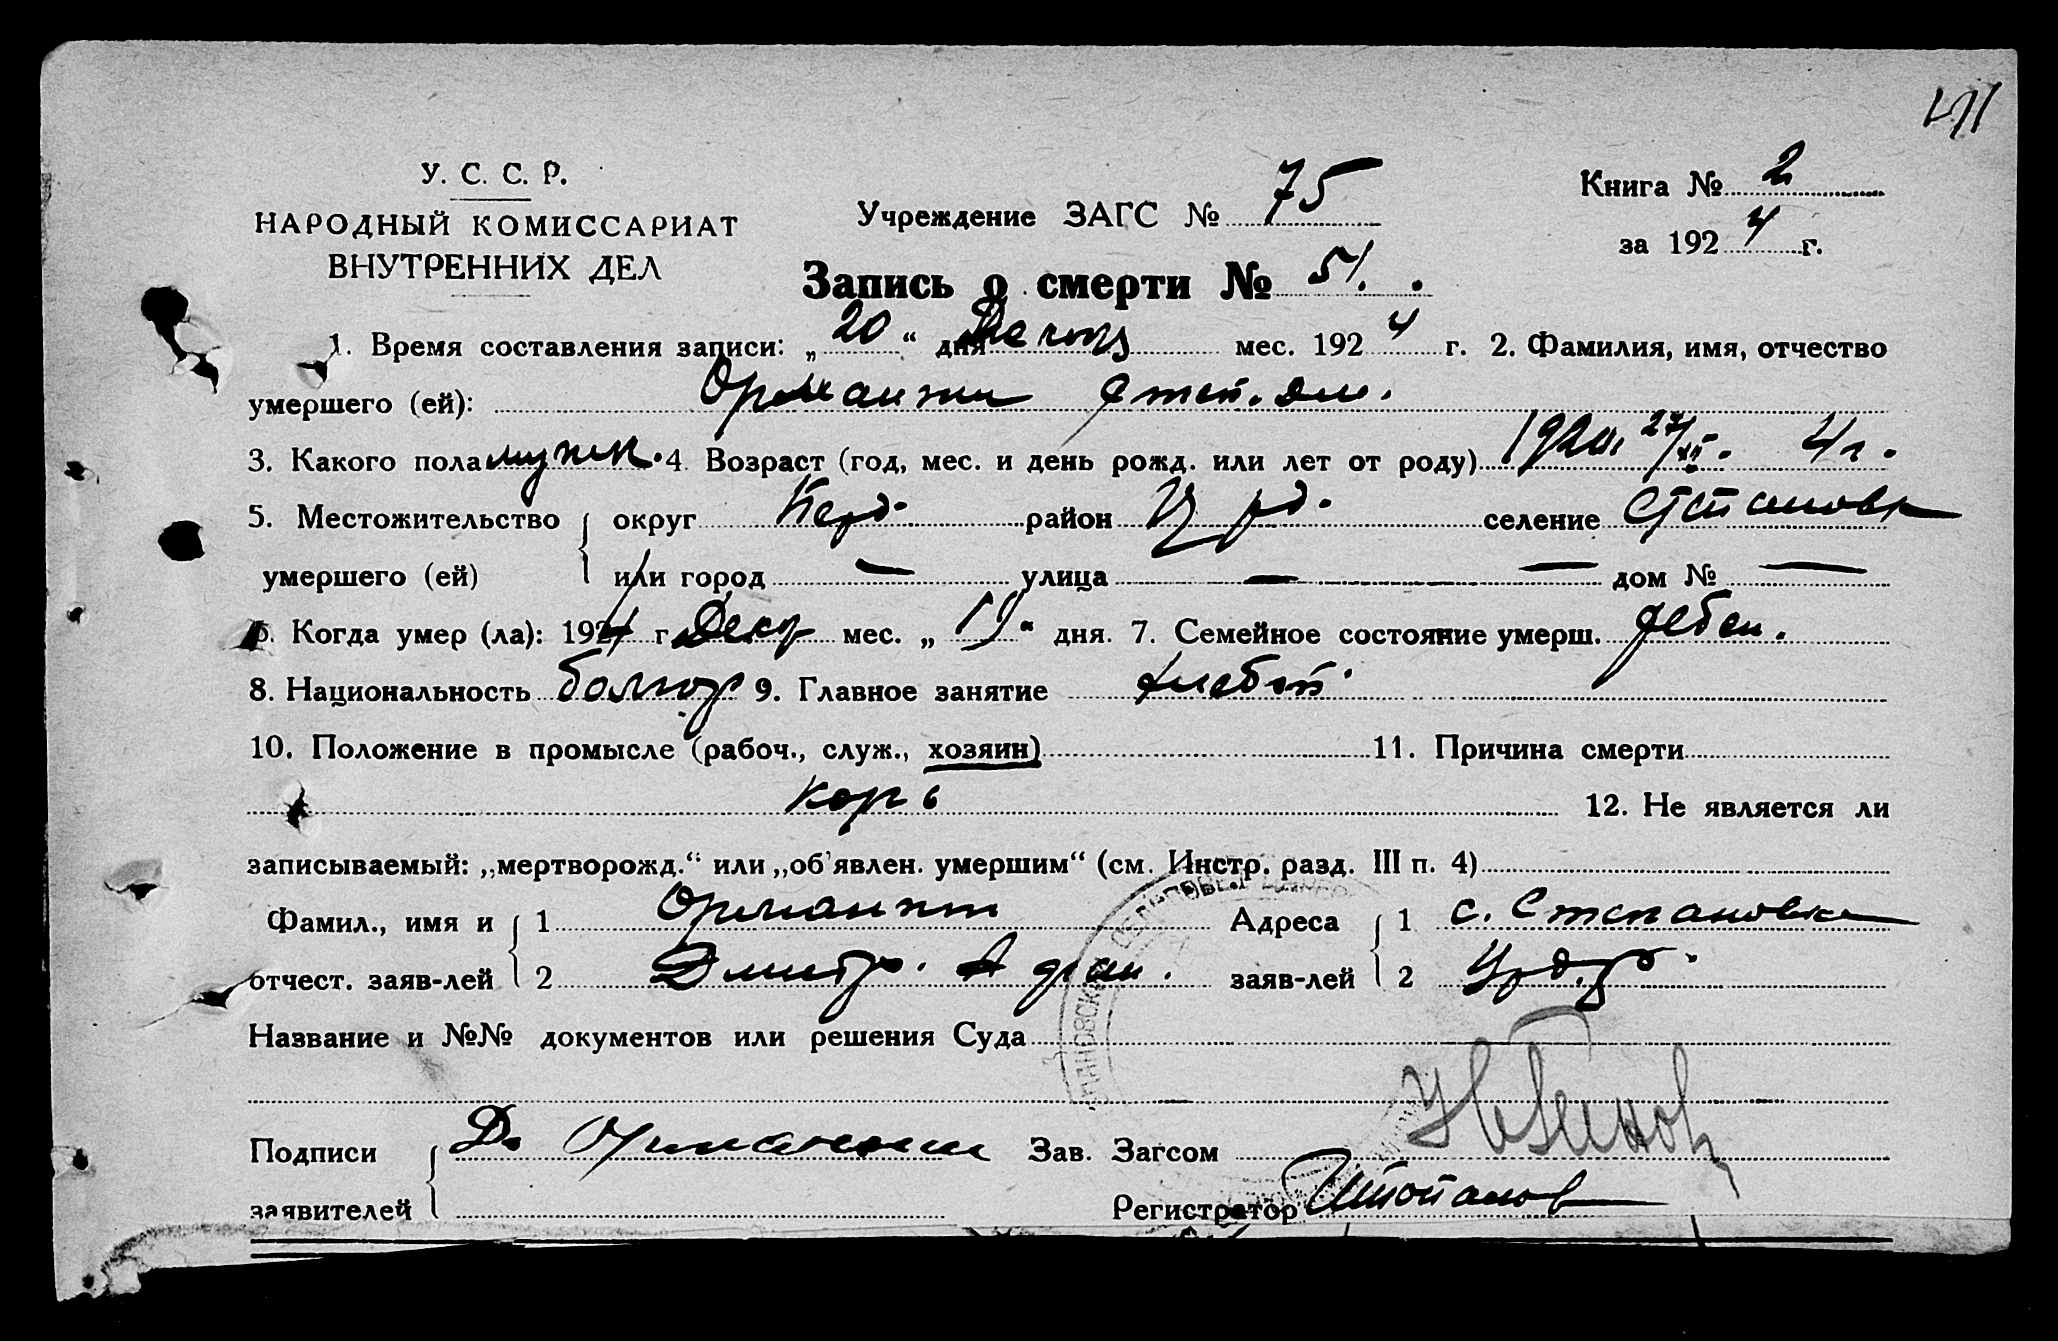 У. С. С. Р.
НАРОДНЫЙ КОМИССАРИАТ
ВНУТРЕННИХ ДЕЛ
Учреждение ЗАГС № 75
Книга № 2
за 1924 г.
Запись о смерти № 51.
1. Время составления записи: „20“ дня мес. 1924 г. 2. Фамилия, имя, отчество
умершего (ей): Орманжи
3. Какого пола мужск. 4 Возраст (год, мес. и день рожд. или лет от роду) 4 г.
5. Местожительство округ район селение
умершего (ей) или город — улица — — дом № —
6. Когда умер (ла): 1924 г. Декабр мес. „19“ дня. 7. Семейное состояние умерш. ребен.
8. Национальность болгар 9. Главное занятие хлебоп.
10. Положение в промысле (рабоч., служ., хозяин) 11. Причина смерти
корь 12. Не является ли
записываемый: „мертворожд.“ или „об'явлен. умершим“ (см. Инстр. разд. III п. 4)
Фамил., имя и 1 Орманжи Адреса 1 с. Степановка
отчест. заяв-лей 2 Дмитр. заяв-лей 2
Название и №№ документов или решения Суда
Подписи Д. Орманжи Зав. Загсом
заявителей Регистратор